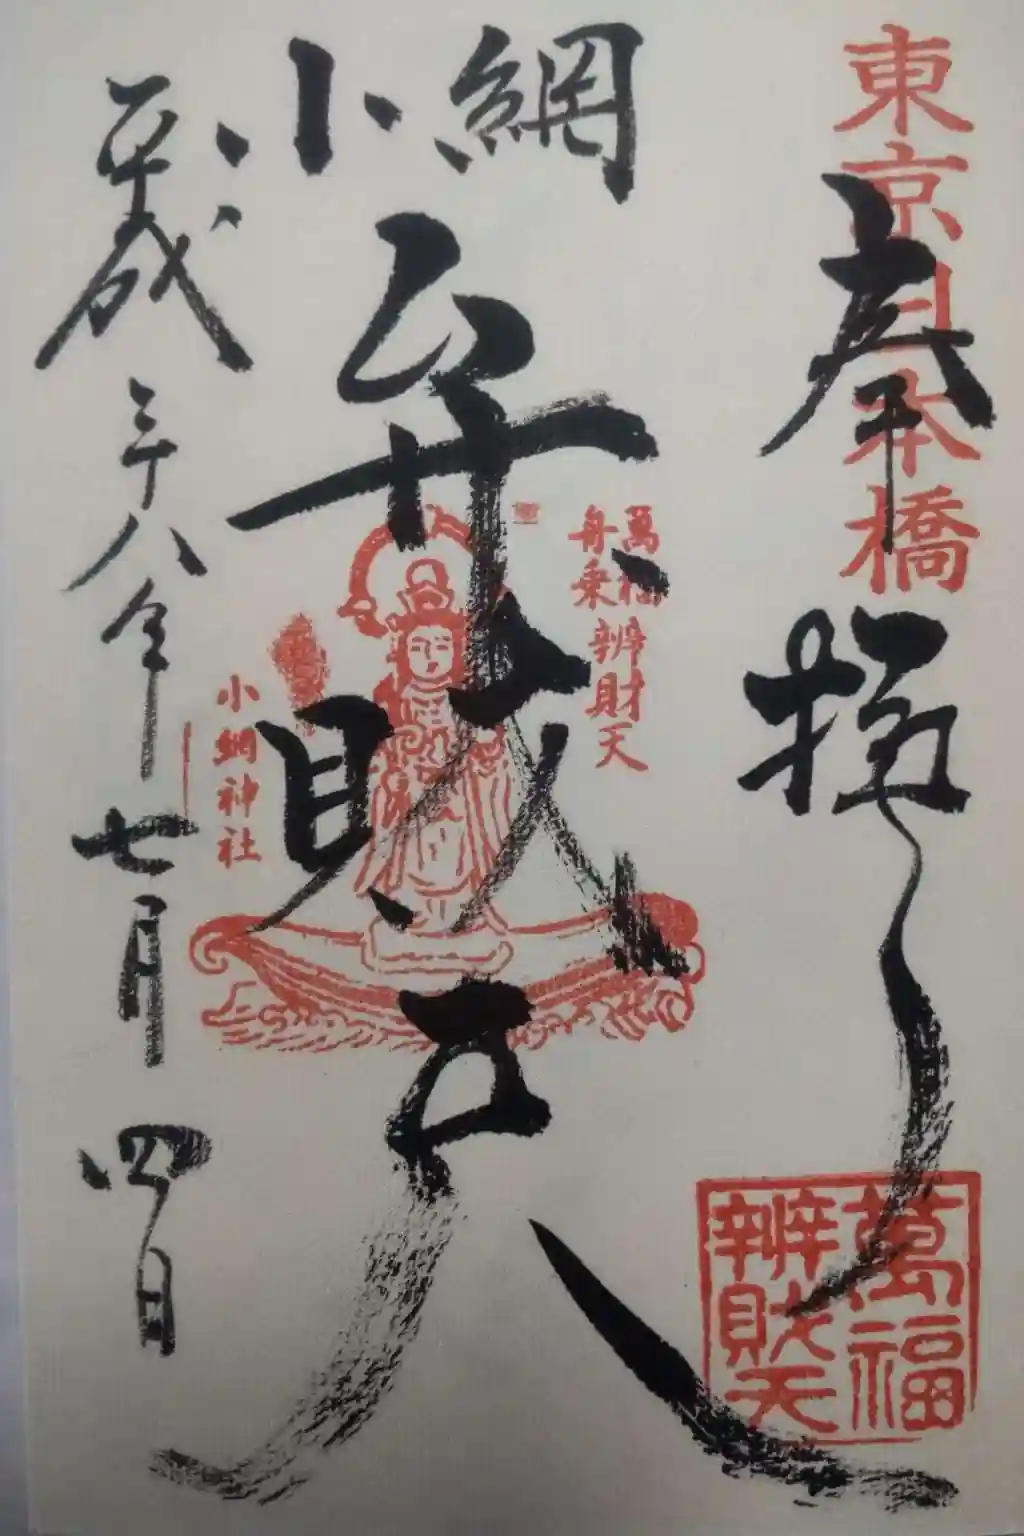 東京日本橋
奉拝
小網
弁財天
萬福
舟乗弁財天
小網神社
平成二十八年七月四日
萬福
辨財天